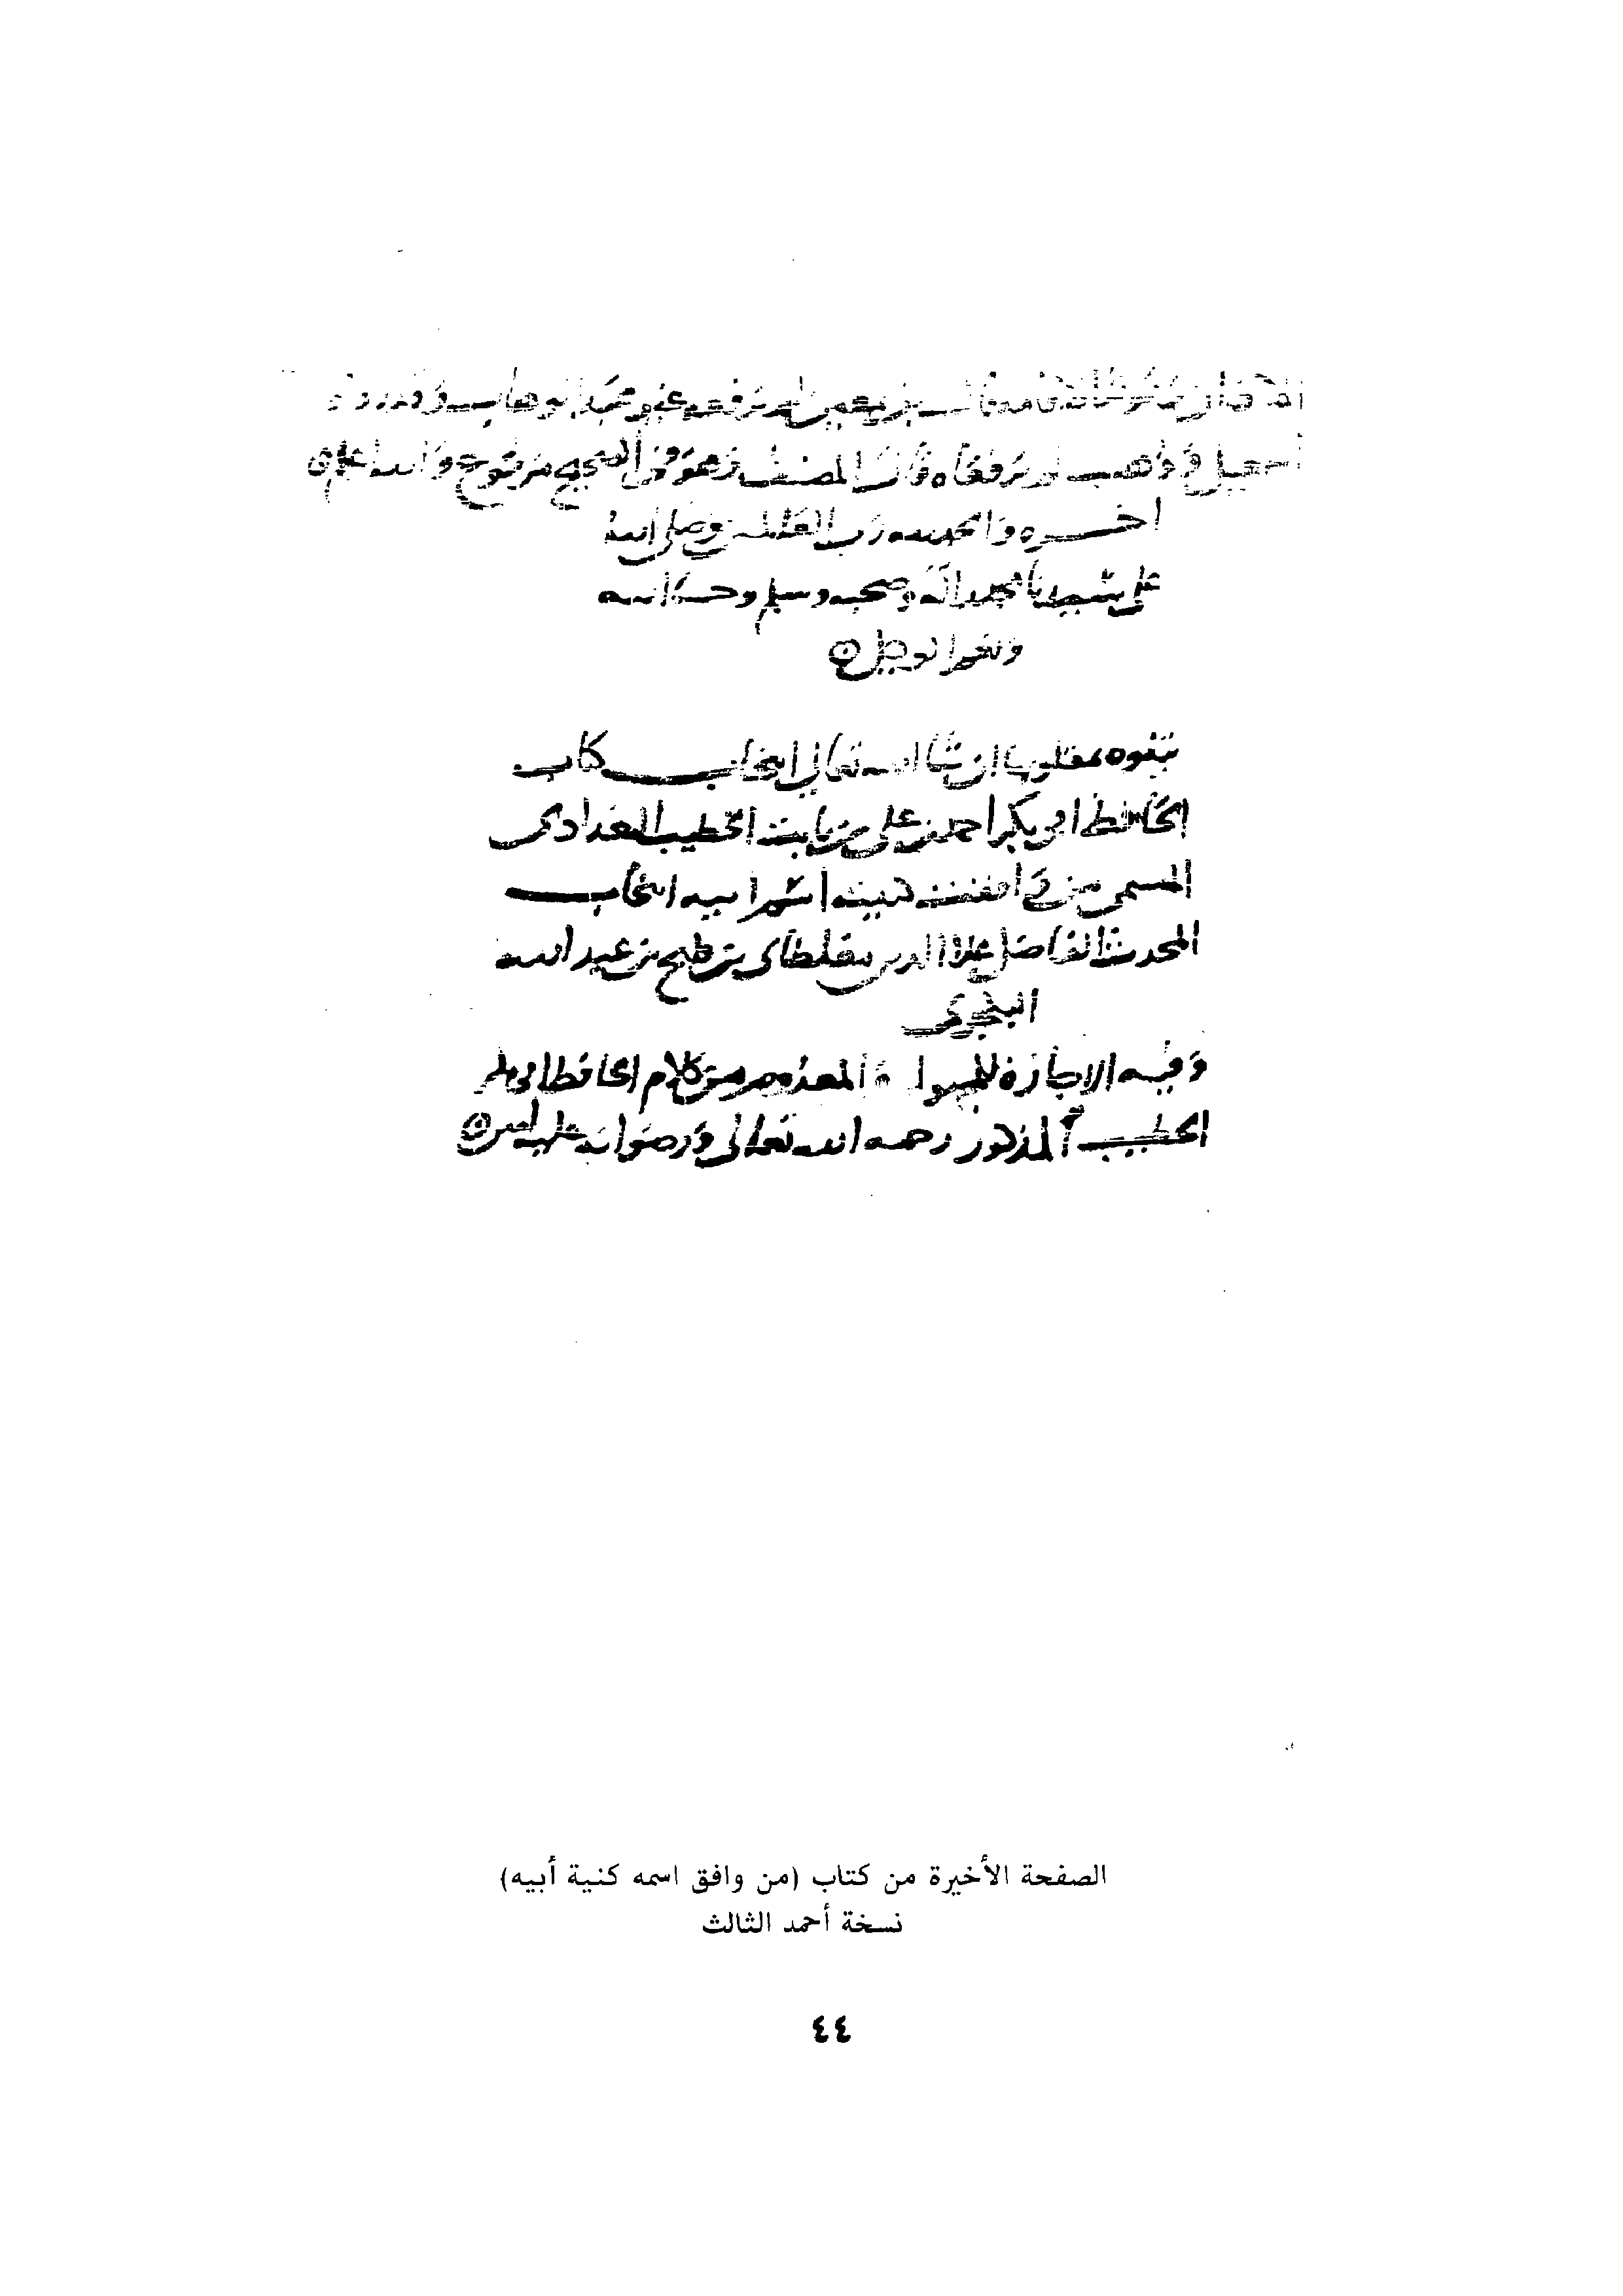 لم يرفعه غير عبد الوهاب
لم يرفعاه قال المصنف وهو في الصحيح مرفوع والله اعلم
اخره والحمد لله رب العالمين وصلى الله
على سيدنا محمد واله وصحبه وسلم وحسبنا الله
ونعم الوكيل
يتلوه مقلوبا ان شا الله تعالى انتخاب كتاب
الحافظ ابي بكر احمد بن علي بن ثابت الخطيب البغدادي
المسمى من وافقت كنيته اسم ابيه انتخاب
المحدث الفاضل علاء الدين مغلطاي بن قليج بن عبد الله
البكجري
وفيه الاجازة للمجهول والمعدوم من كلام الحافظ ابي بكر
الخطيب المذكور رحمه الله تعالى ورضوانه عليه امين
الصفحة الأخيرة من كتاب (من وافق اسمه كنية أبيه)
نسخة أحمد الثالث
٤٤